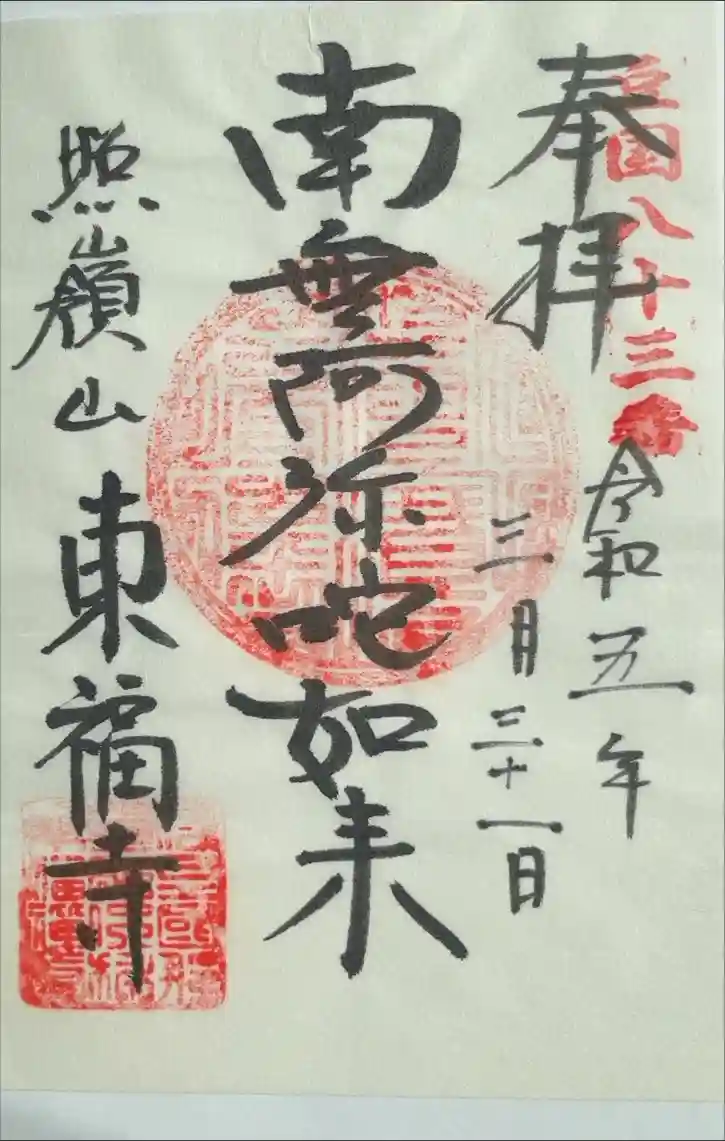 国八十三番
奉拝
令和五年
三月三十一日
南無阿弥陀如来
照嶺山東福寺